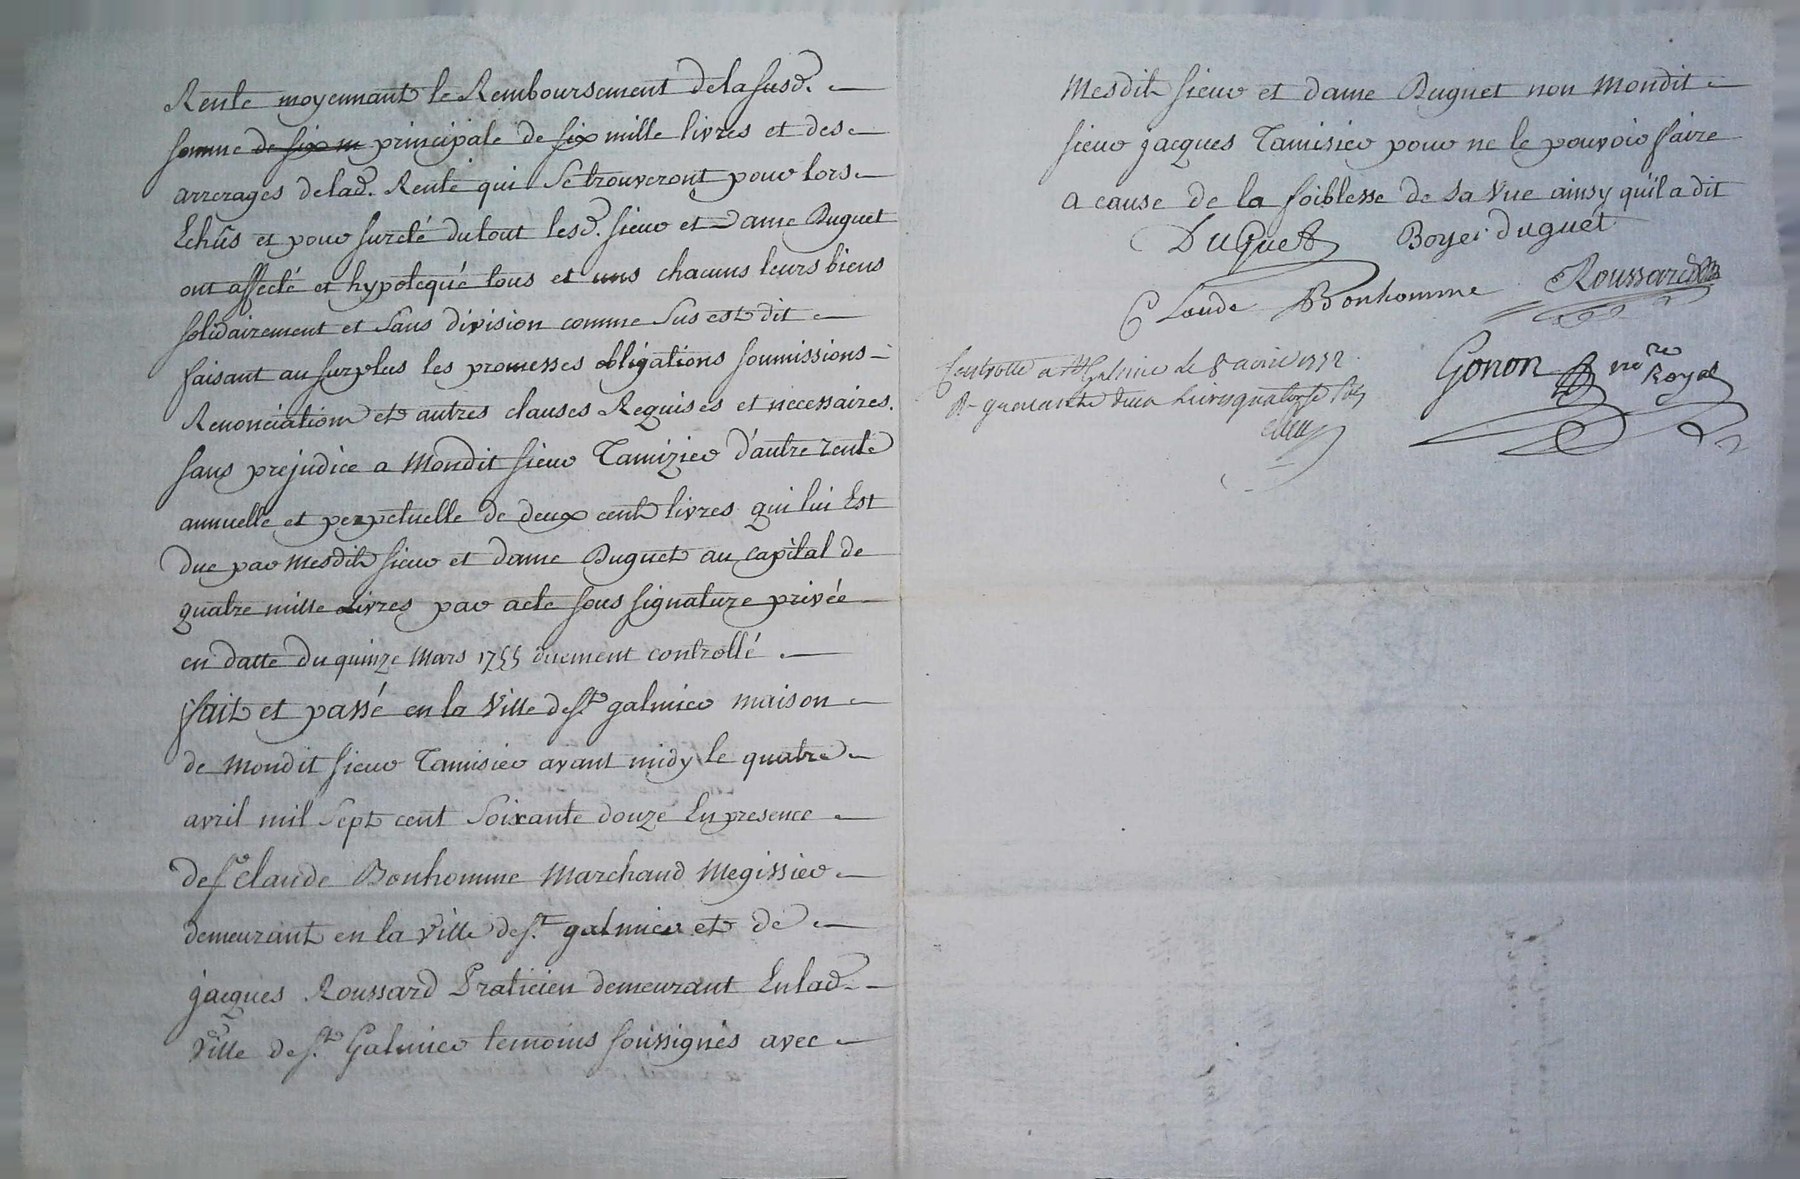 Rente moyennant le Remboursement dela susd.
somme de six m principale de six mille livres et des
arrerages delad. Rente qui se trouveront pour lors
Echûs et pour sureté dutout lesd. sieur et Dame Duguet
ont affecté et hypotequé tous et uns chacuns leurs biens
solidairement et sans division comme sus est dit
faisant au surplus les promesses obligations soumissions
Renonciation et autres clauses Requises et necessaires.
sans prejudice a Mondit sieur Tamizier d'autre rente
annuelle et perpetuelle de deux cent livres qui lui Est
due par mesdits sieur et dame Duguet au capital de
quatre mille Livres par acte sous signature privée
en datte du quinze Mars 1755 duement controllé.
fait et passé en la Ville de St. galmier maison
de Mondit sieur Tamisier avant midy le quatre
avril mil Sept cent Soixante douze En presence
de sr Claude Bonhomme Marchand Megissier
demeurant en la Ville de St. galmier et de
jacques Roussard Praticien demeurant Enlad.
Ville de St. Galmier temoins soussignés avec
Mesdits sieur et dame Duguet non Mondit
sieur jacques Tamisier pour ne le pouvoir faire
a cause de la foiblesse de sa Vue ainsy qu'il a dit
DuGuet Boyer duguet
Claude Bonhomme Roussard
Controllé a St Galmier le 8 avril 1772
R- quarante deux Livres quatorze sols
Gonon nre Royal